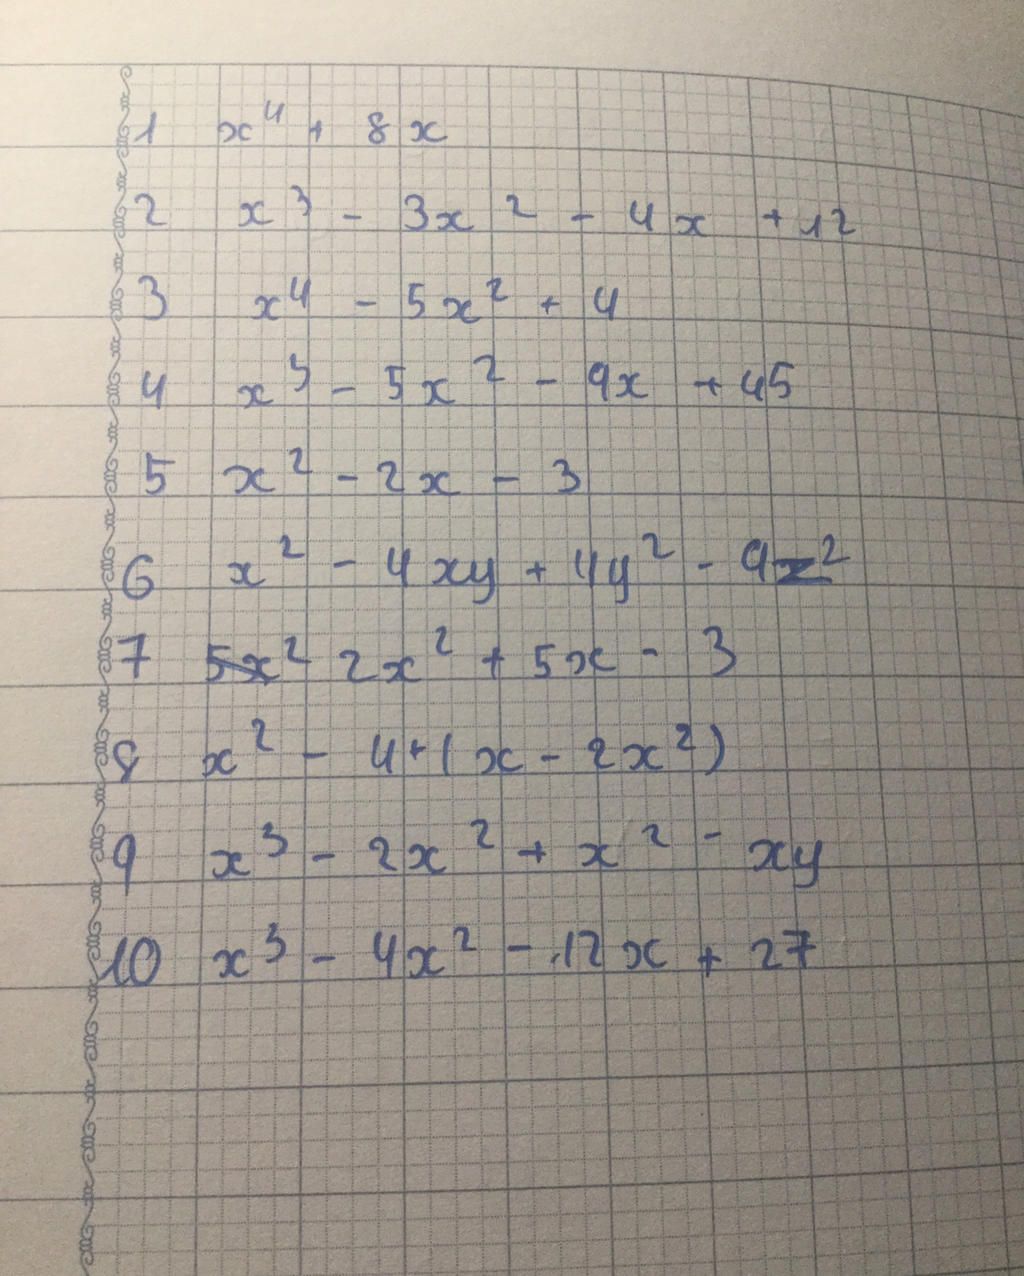 1 x⁴ + 8x
2 x³ - 3x² - 4x + 12
3 x⁴ - 5x² + 4
4 x³ - 5x² - 9x + 45
5 x² - 2x - 3
6 x² - 4xy + 4y² - 9z²
7 5x² 2x² + 5x - 3
8 x² - 4 + (x - 2x²)
9 x³ - 2x² + x² - xy
10 x³ - 4x² - 12x + 27